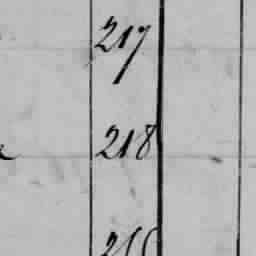 217
218